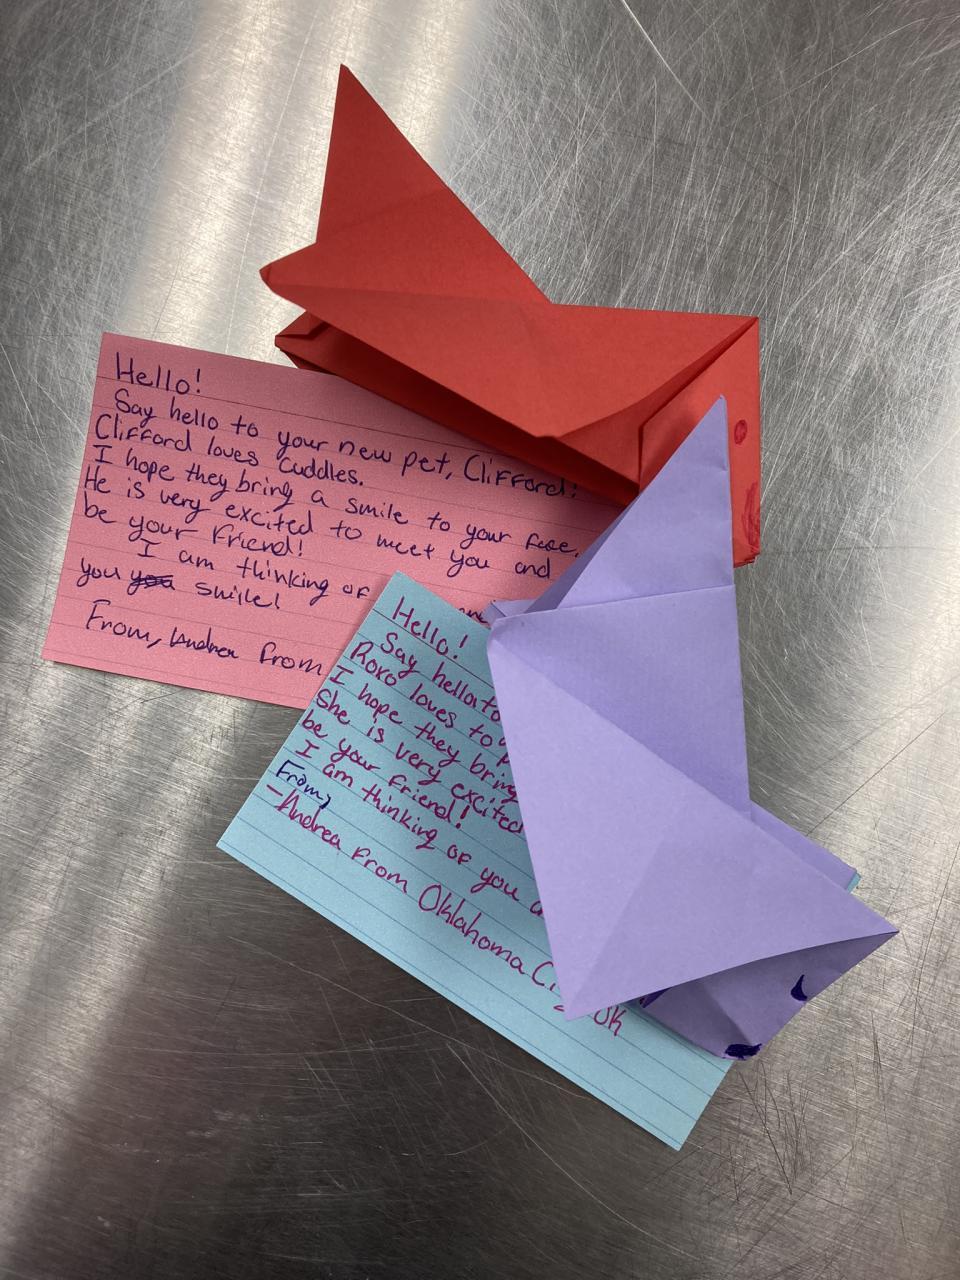 Hello!
Say hello to your new pet, Clifford!
Clifford loves cuddles.
I hope they bring a smile to your face.
He is very excited to meet you and
be your friend!
I am thinking of
you you smile!
From, Andrea from
Hello!
Say hello to
Roxo loves to
I hope they bring
She is very excited
be your friend!
I am thinking of you
From,
-Andrea from Oklahoma OK